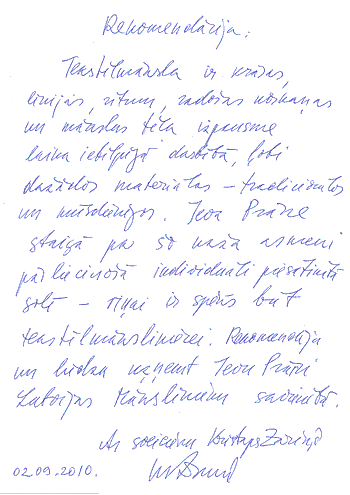 Rekomendācija.
Tekstilmāksla ir krāsas,
līnijas, ritma, radošas noskaņas
un mākslas tēla izgaismo
laika ietilpīgā darbībā, ļoti
dažādos materiālos – tradicionālos
un mūsdienīgos. Ieva Prāne
staigā pa šo naža asmeni
pārliecinošā individuāli piesātinātā
solī – viņai ir spēks būt
tekstilmāksliniecei. Rekomendēju
un lūdzu uzņemt Ievu Prāni
Latvijas Mākslinieku savienībā.
Ar sveicienu Kristaps Zariņš
02.09.2010.